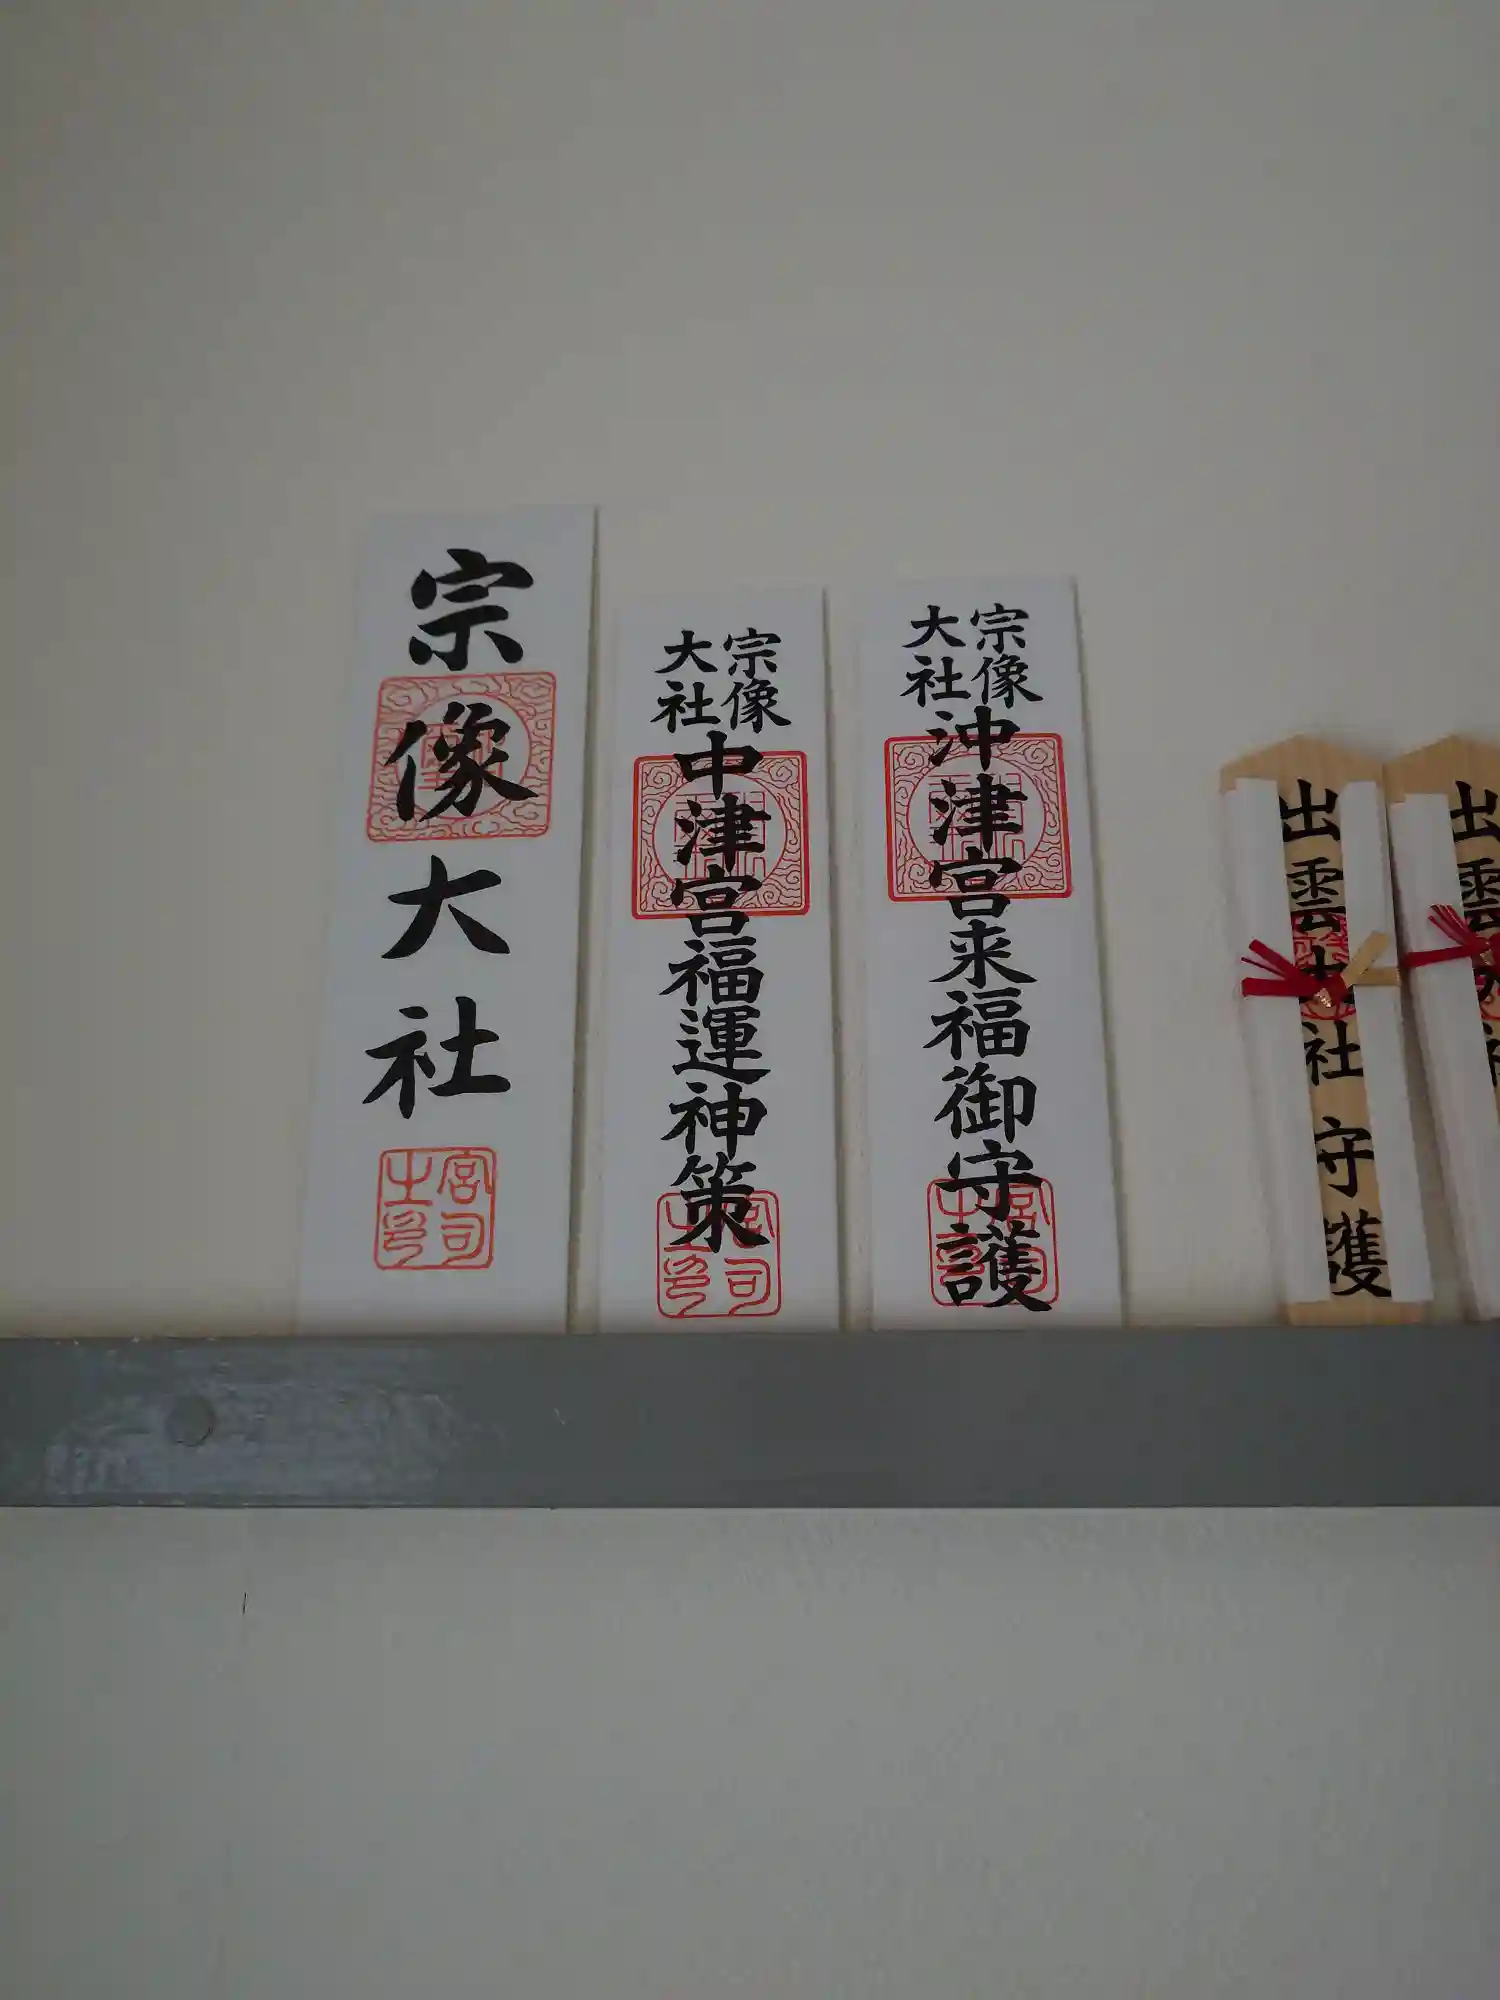 宗像大社
宮司
之印
宗像
大社
中津宮福運神策
宮司
之印
宗像
大社
沖津宮来福御守護
宮司
之印
出雲大社守護
出雲